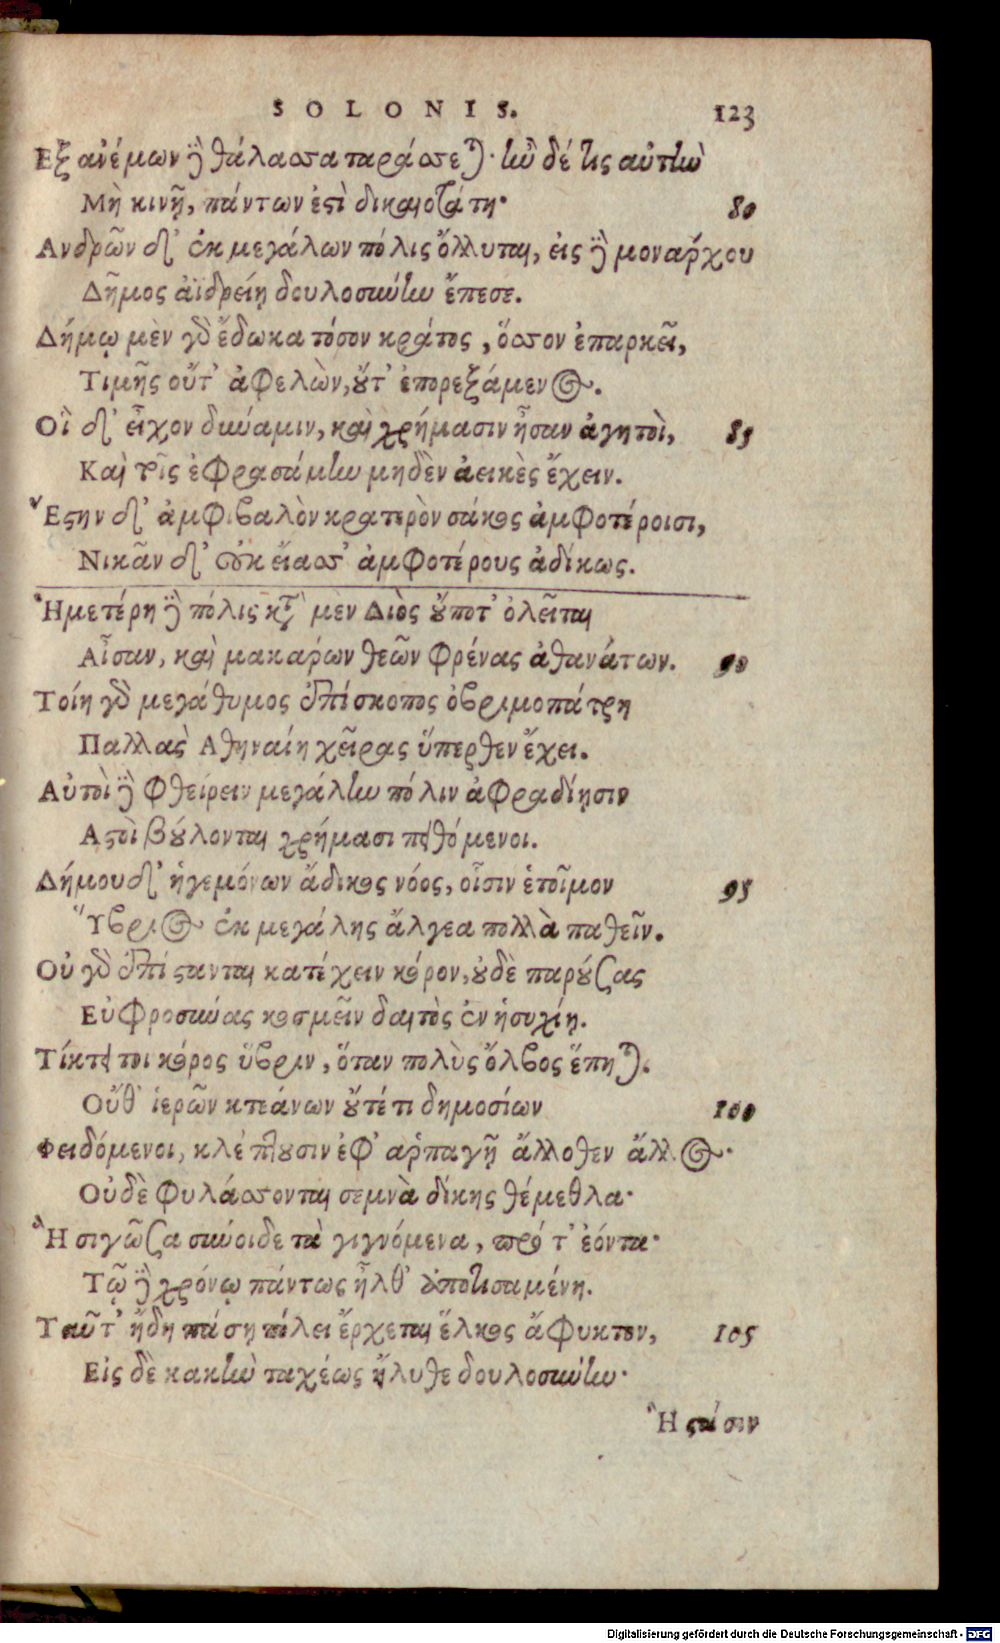 SOLONIS. 123
Εξ ἀνέμων ἢ θάλασσα ταράσσεται· ἢν δέ τις αὐτὴν
Μὴ κινῇ, πάντων ἐστὶ δικαιοτάτη· 80
Ανδρῶν δ' ἐκ μεγάλων πόλις ὄλλυται, εἰς δὲ μονάρχου
Δῆμος ἀϊδρείῃ δουλοσύνην ἔπεσε.
Δήμῳ μὲν γὸ ἔδωκα τόσον κράτος, ὅσσον ἐπαρκεῖ,
Τιμῆς οὔτ' ἀφελὼν, οὔτ' ἐπορεξάμενος.
Οἳ δ' εἶχον δύναμιν, καὶ χρήμασιν ἦσαν ἀγητοὶ, 85
Καὶ τοῖς ἐφρασάμην μηδὲν ἀεικὲς ἔχειν.
Ἔστην δ' ἀμφιβαλὸν κρατερὸν σάκος ἀμφοτέροισι,
Νικᾶν δ' οὐκ εἴασσ' ἀμφοτέρους ἀδίκως.
Ἡμετέρη δὲ πόλις κατὰ μὲν Διὸς οὔποτ' ὀλεῖται
Αἶσαν, καὶ μακάρων θεῶν φρένας ἀθανάτων. 90
Τοίη γὸ μεγάθυμος ἐπίσκοπος ὀβριμοπάτρη
Παλλὰς Αθηναίη χεῖρας ὕπερθεν ἔχει.
Αὐτοὶ δὲ φθείρειν μεγάλην πόλιν ἀφραδίῃσιν
Αστοὶ βούλονται χρήμασι πειθόμενοι.
Δήμου δ' ἡγεμόνων ἄδικος νόος, οἷσιν ἑτοῖμον 95
Ὕβριος ἐκ μεγάλης ἄλγεα πολλὰ παθεῖν.
Οὐ γὸ ἐπίστανται κατέχειν κόρον, οὐδὲ παρούσας
Εὐφροσύνας κοσμεῖν δαιτὸς ἐν ἡσυχίῃ.
Τίκτει τοι κόρος ὕβριν, ὅταν πολὺς ὄλβος ἕπηται.
Οὔθ' ἱερῶν κτεάνων οὔτέ τι δημοσίων 100
Φειδόμενοι, κλέπτουσιν ἐφ' ἁρπαγῇ ἄλλοθεν ἄλλος·
Οὐδὲ φυλάσσονται σεμνὰ δίκης θέμεθλα·
Ἣ σιγῶσα σύνοιδε τὰ γιγνόμενα, πρό τ' ἐόντα·
Τῷ δὲ χρόνῳ πάντως ἦλθ' ἀποτισαμένη.
Ταῦτ' ἤδη πάσῃ πόλει ἔρχεται ἕλκος ἄφυκτον, 105
Εἰς δὲ κακὴν ταχέως ἤλυθε δουλοσύνην·
Ἣ στάσιν
Digitalisierung gefördert durch die Deutsche Forschungsgemeinschaft - DFG